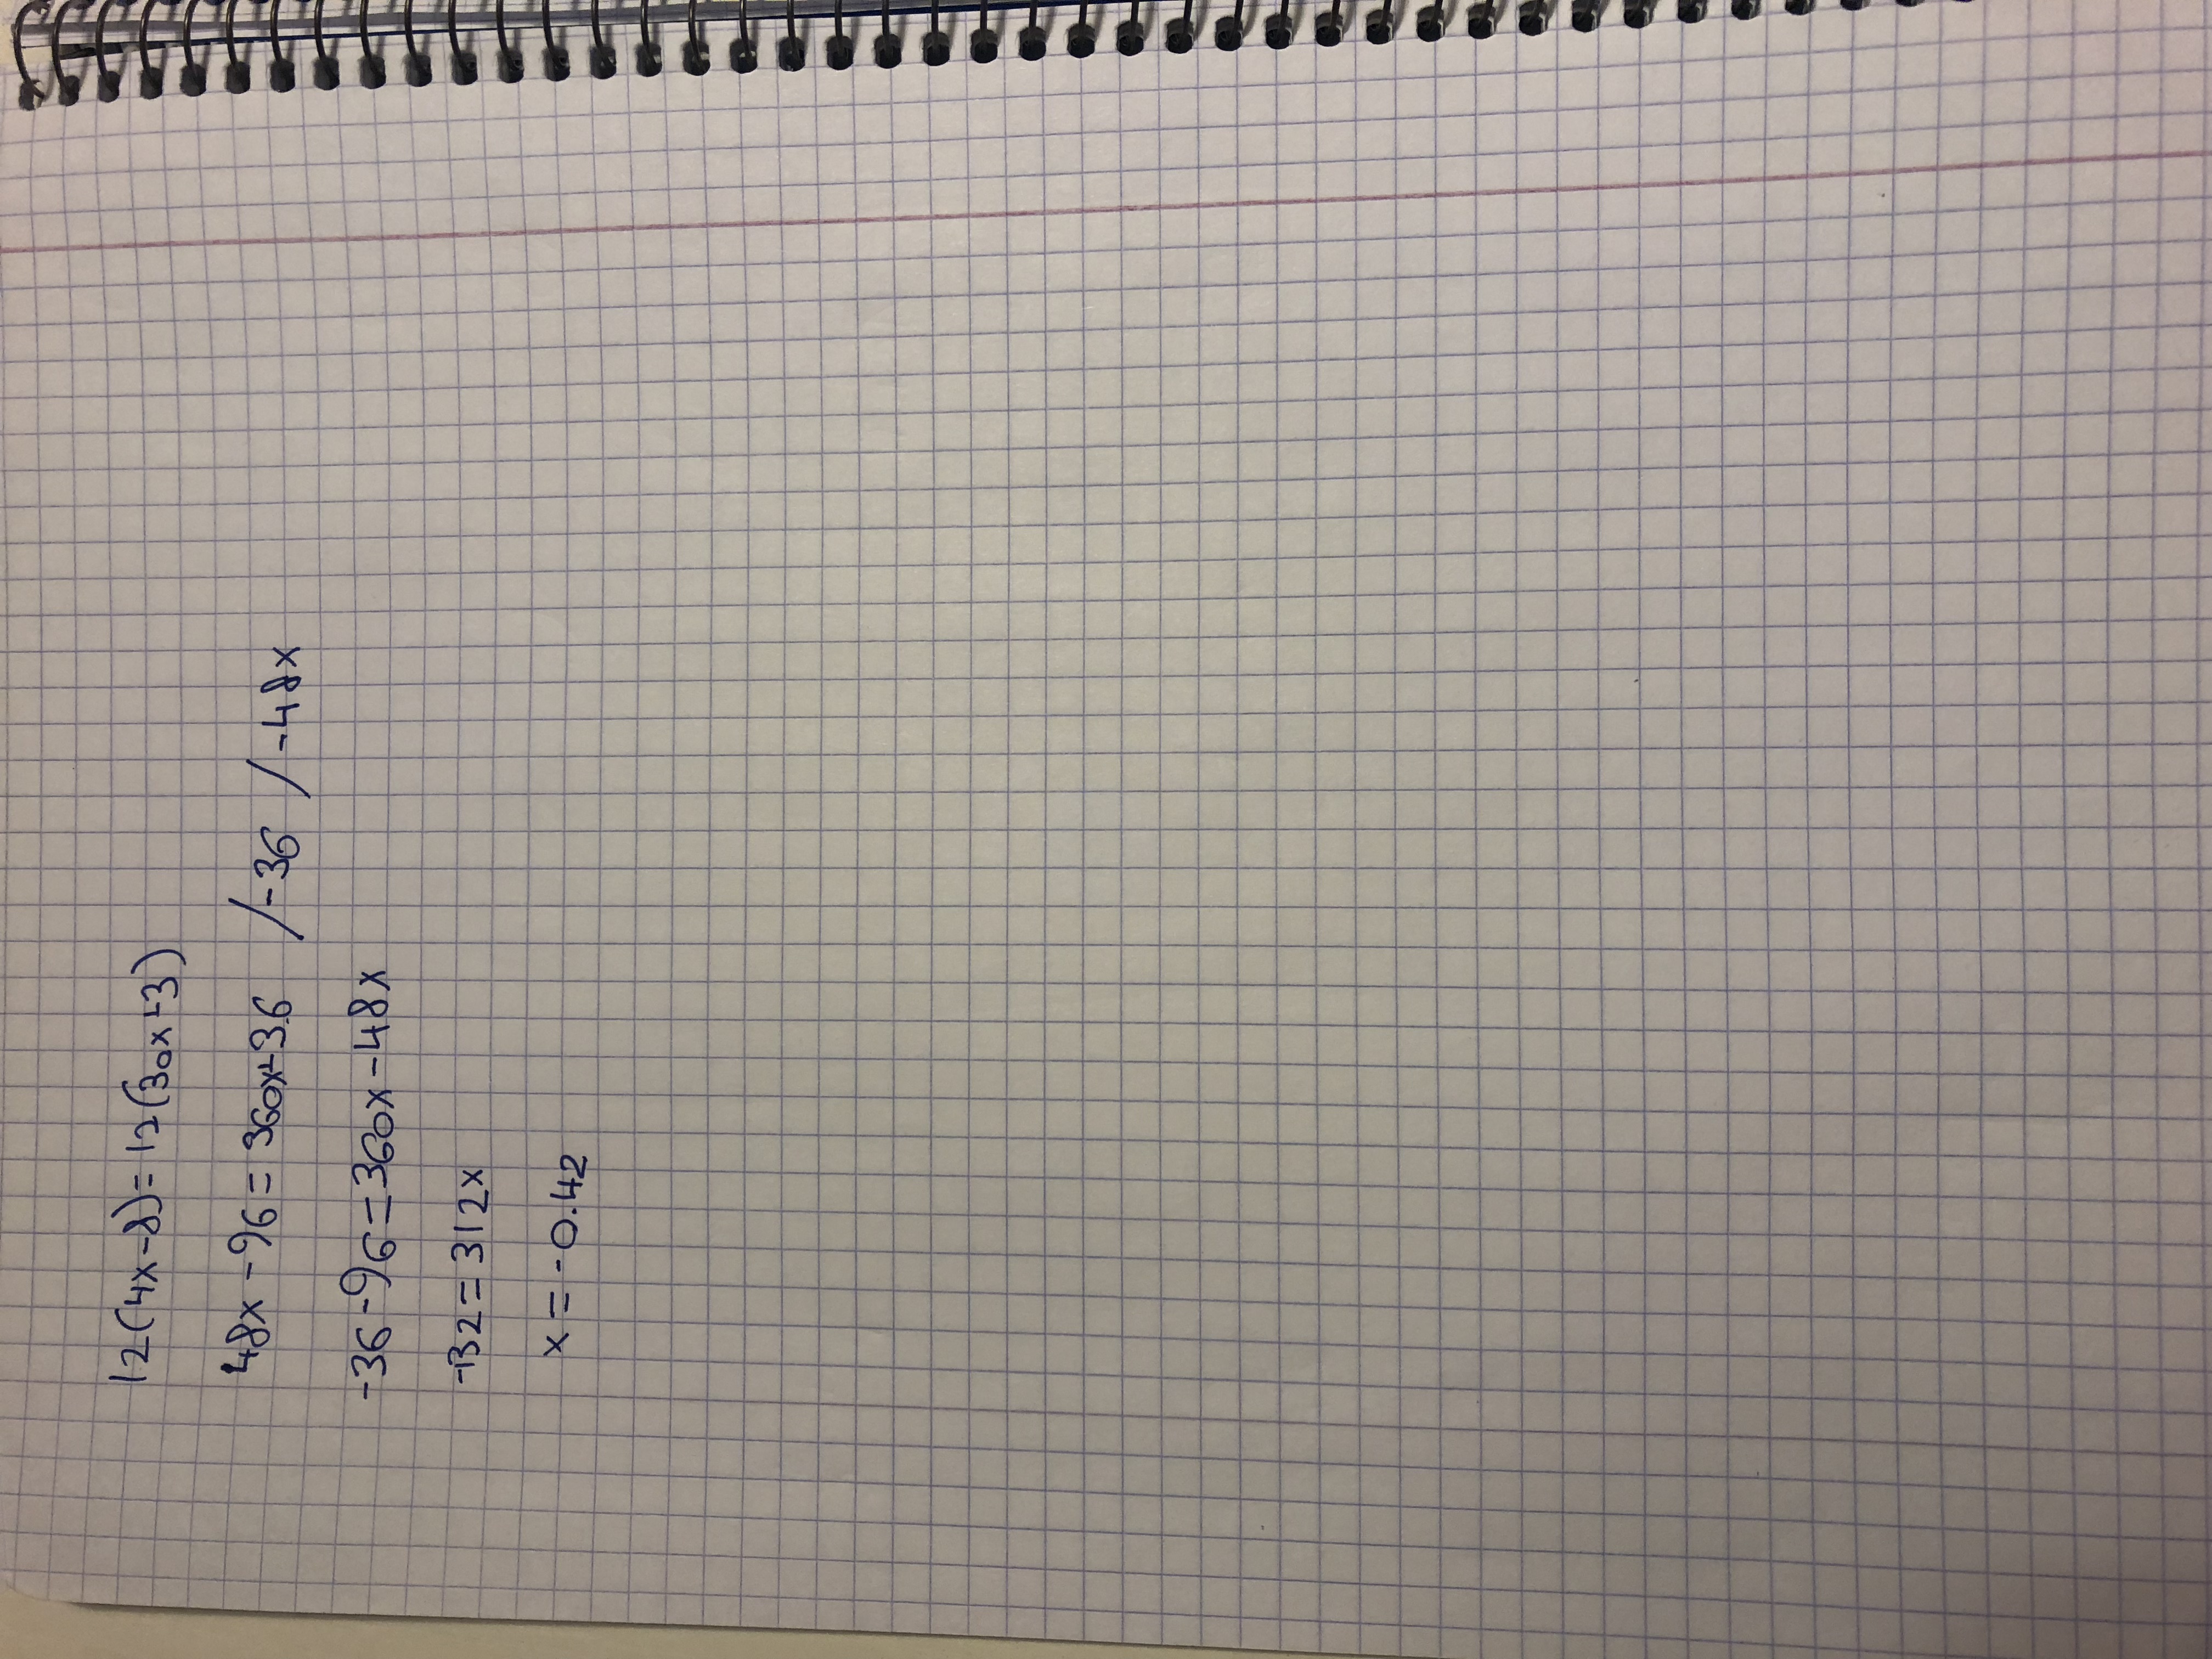 12(4x-8)=12(30x+3)
48x-96=360x+36 /-36 /-48x
-36-96=360x-48x
-132=312x
x=-0.42